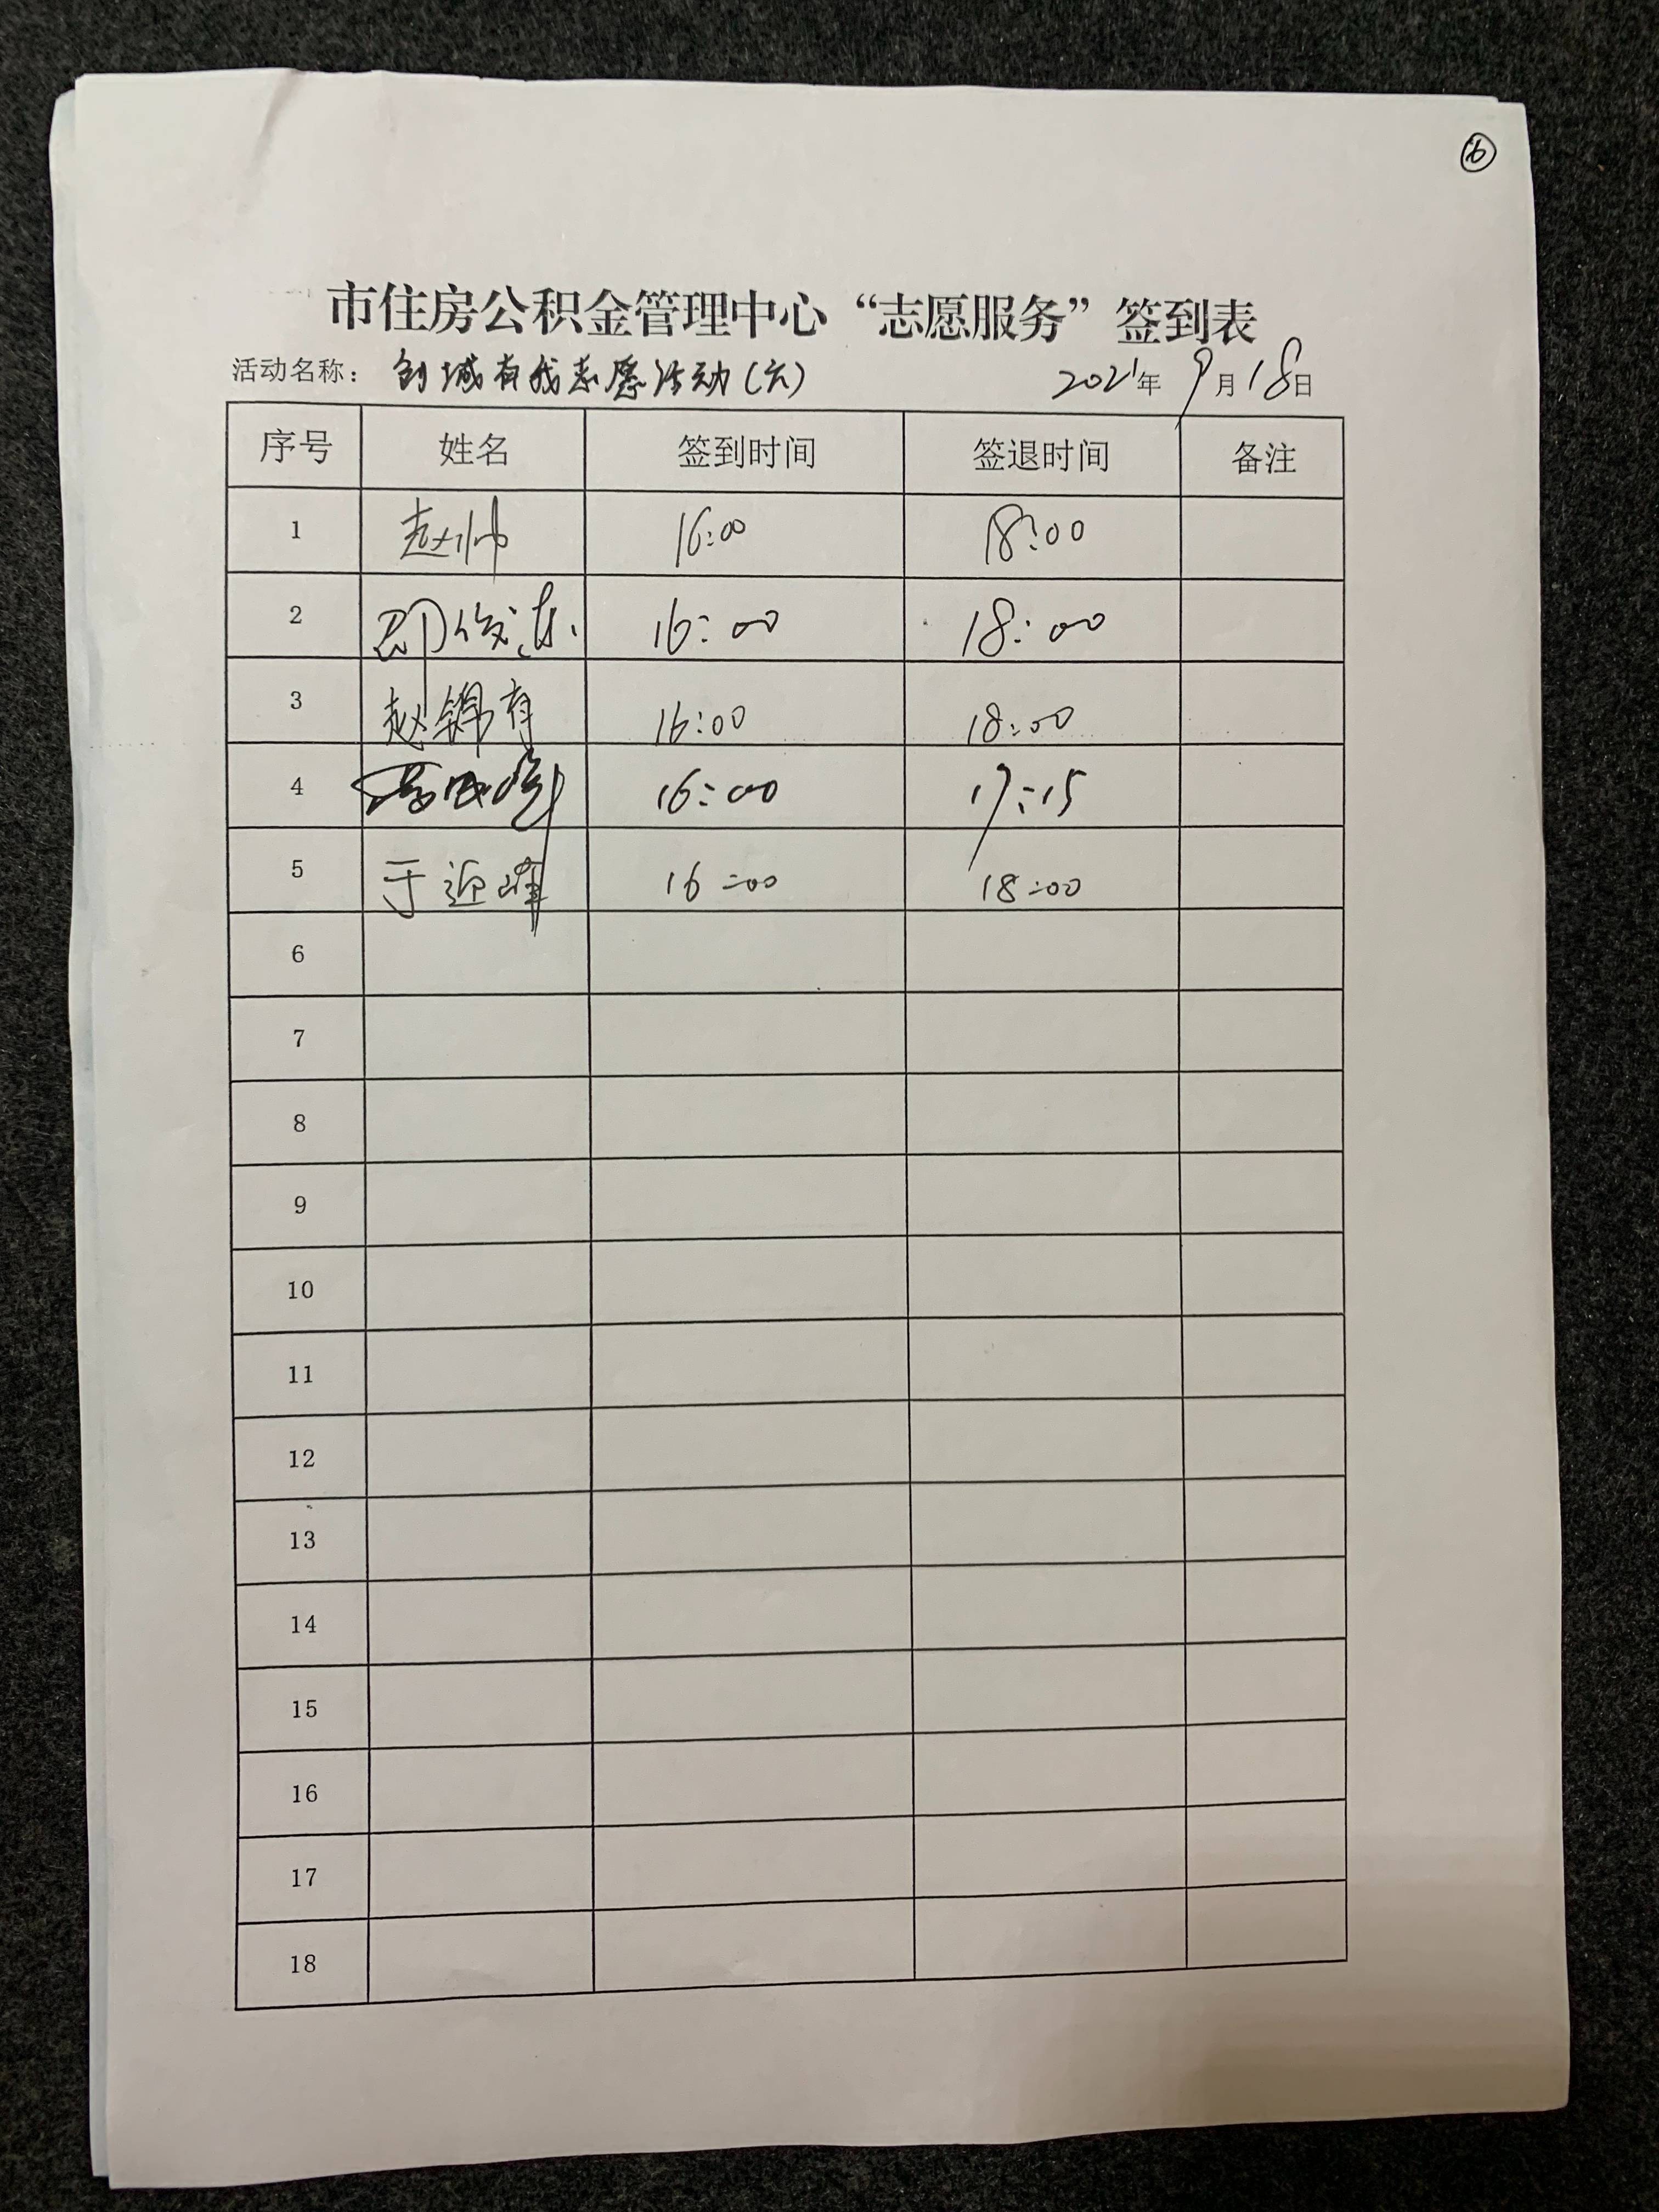 ⑥
市住房公积金管理中心“志愿服务”签到表
活动名称：创城有我志愿活动(六) 2021年9月18日
序号 姓名 签到时间 签退时间 备注
1 赵帅 16:00 18:00
2 16:00 18:00
3 赵锦有 16:00 18:00
4 16:00 17:15
5 于近 16:00 18:00
6
7
8
9
10
11
12
13
14
15
16
17
18